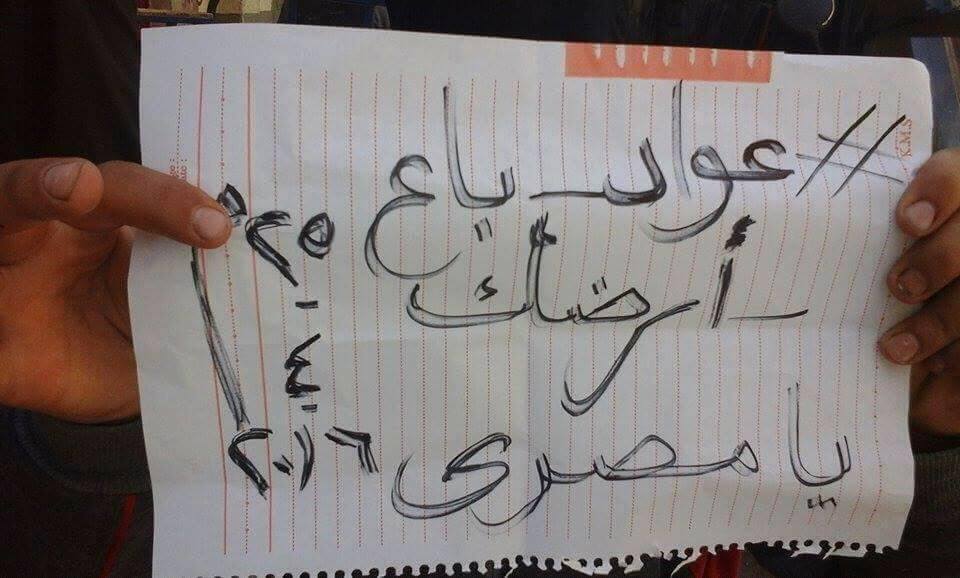 #عواد باع
أرضك
يا مصرى
٢٥
-
٤
-
٢٠١٦
K.M.S